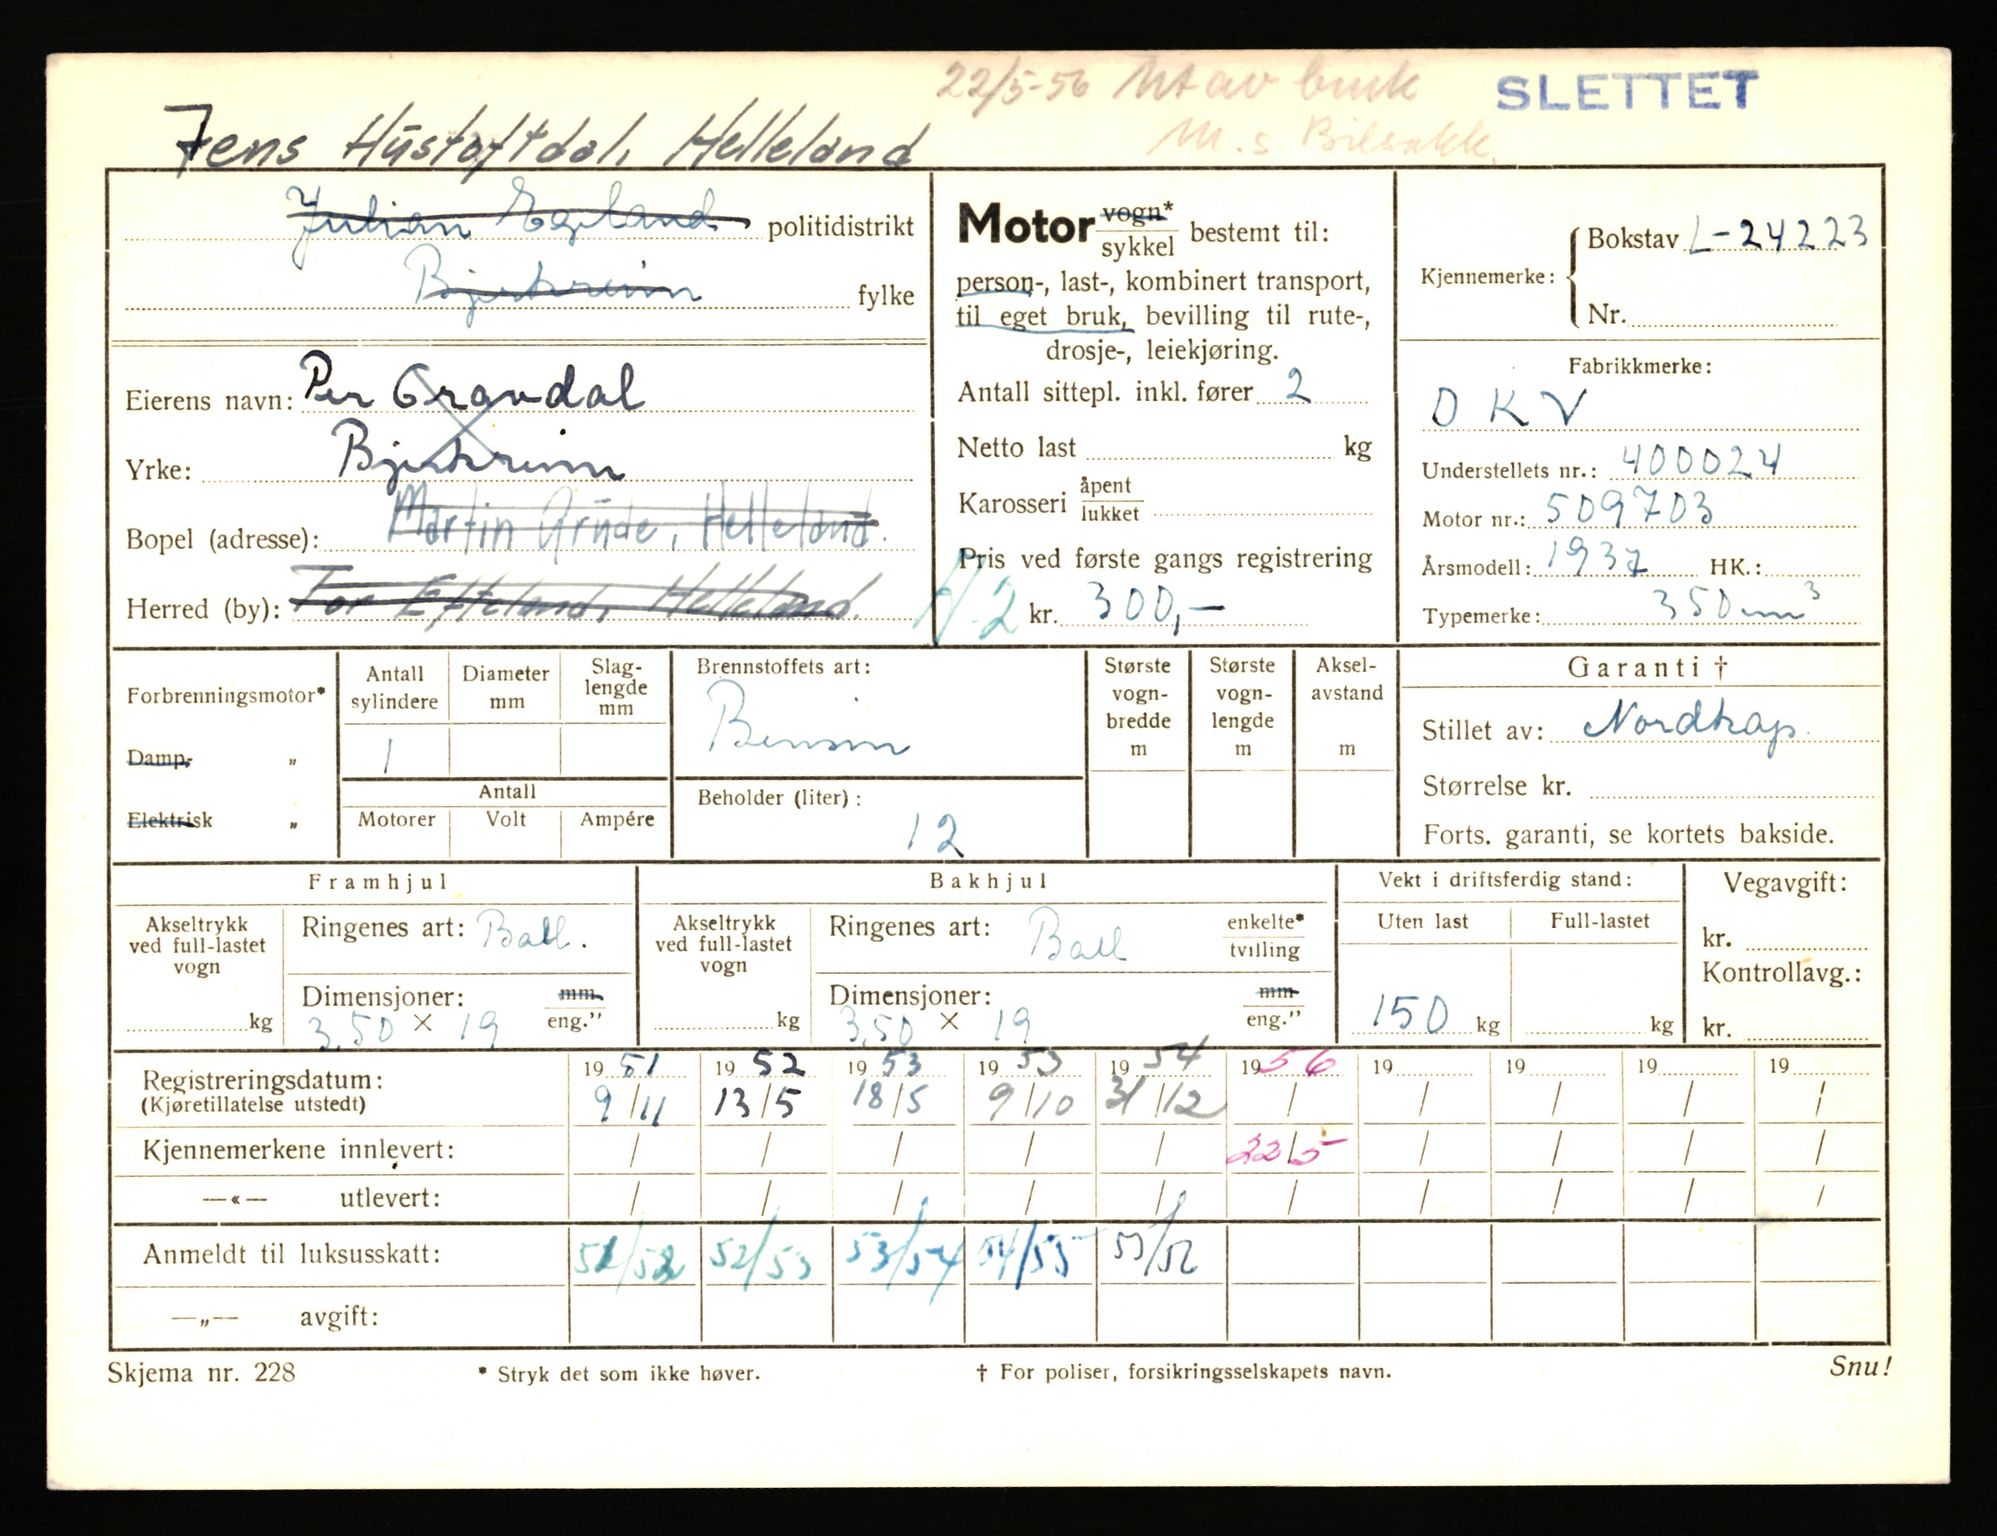 22/5-56 Ut av bruk
SLETTET
M. s Bilsakk.
Jens Hustoftdal, Helleland
Julian Egeland politidistrikt
Bjerkreim fylke
Eierens navn: Per Gravdal
Yrke: Bjerkreim
Bopel (adresse): Martin Grüde, Helleland.
Herred (by): Tor Efteland, Helleland.
Motor vogn* / sykkel bestemt til:
person-, last-, kombinert transport,
til eget bruk, bevilling til rute-,
drosje-, leiekjøring.
Antall sittepl. inkl. fører 2
Netto last kg
Karosseri åpent / lukket
Pris ved første gangs registrering
kr. 300,-
Kjennemerke: Bokstav L-24223
Nr.
Fabrikkmerke:
DKV
Understellets nr.: 400024
Motor nr.: 509703
Årsmodell: 1937 HK.:
Typemerke: 350 cm³
Forbrenningsmotor*
Damp- „
Elektrisk „
Antall sylindere Diameter mm Slag-lengde mm
1
Antall
Motorer Volt Ampére
Brennstoffets art:
Bensin
Beholder (liter):
12
Største vogn-bredde m
Største vogn-lengde m
Aksel-avstand m
Garanti †
Stillet av: Nordkap.
Størrelse kr.
Forts. garanti, se kortets bakside.
Framhjul
Akseltrykk ved full-lastet vogn
kg
Ringenes art: Ball.
Dimensjoner: mm / eng."
3.50 × 19
Bakhjul
Akseltrykk ved full-lastet vogn
kg
Ringenes art: Ball enkelte* / tvilling
Dimensjoner: mm / eng."
3,50 × 19
Vekt i driftsferdig stand:
Uten last Full-lastet
150 kg kg
Vegavgift:
kr.
Kontrollavg.:
kr.
19 51 19 52 19 53 19 53 19 54 19 56 19 19 19 19
Registreringsdatum:
(Kjøretillatelse utstedt) 9/11 13/5 18/5 9/10 31/12 / / / / /
Kjennemerkene innlevert: / / / / / 22/5 / / / /
—«— utlevert: / / / / / / / / / /
Anmeldt til luksusskatt: 52/53 53/54 54/55
—„— avgift:
Skjema nr. 228
* Stryk det som ikke høver.
† For poliser, forsikringsselskapets navn.
Snu!